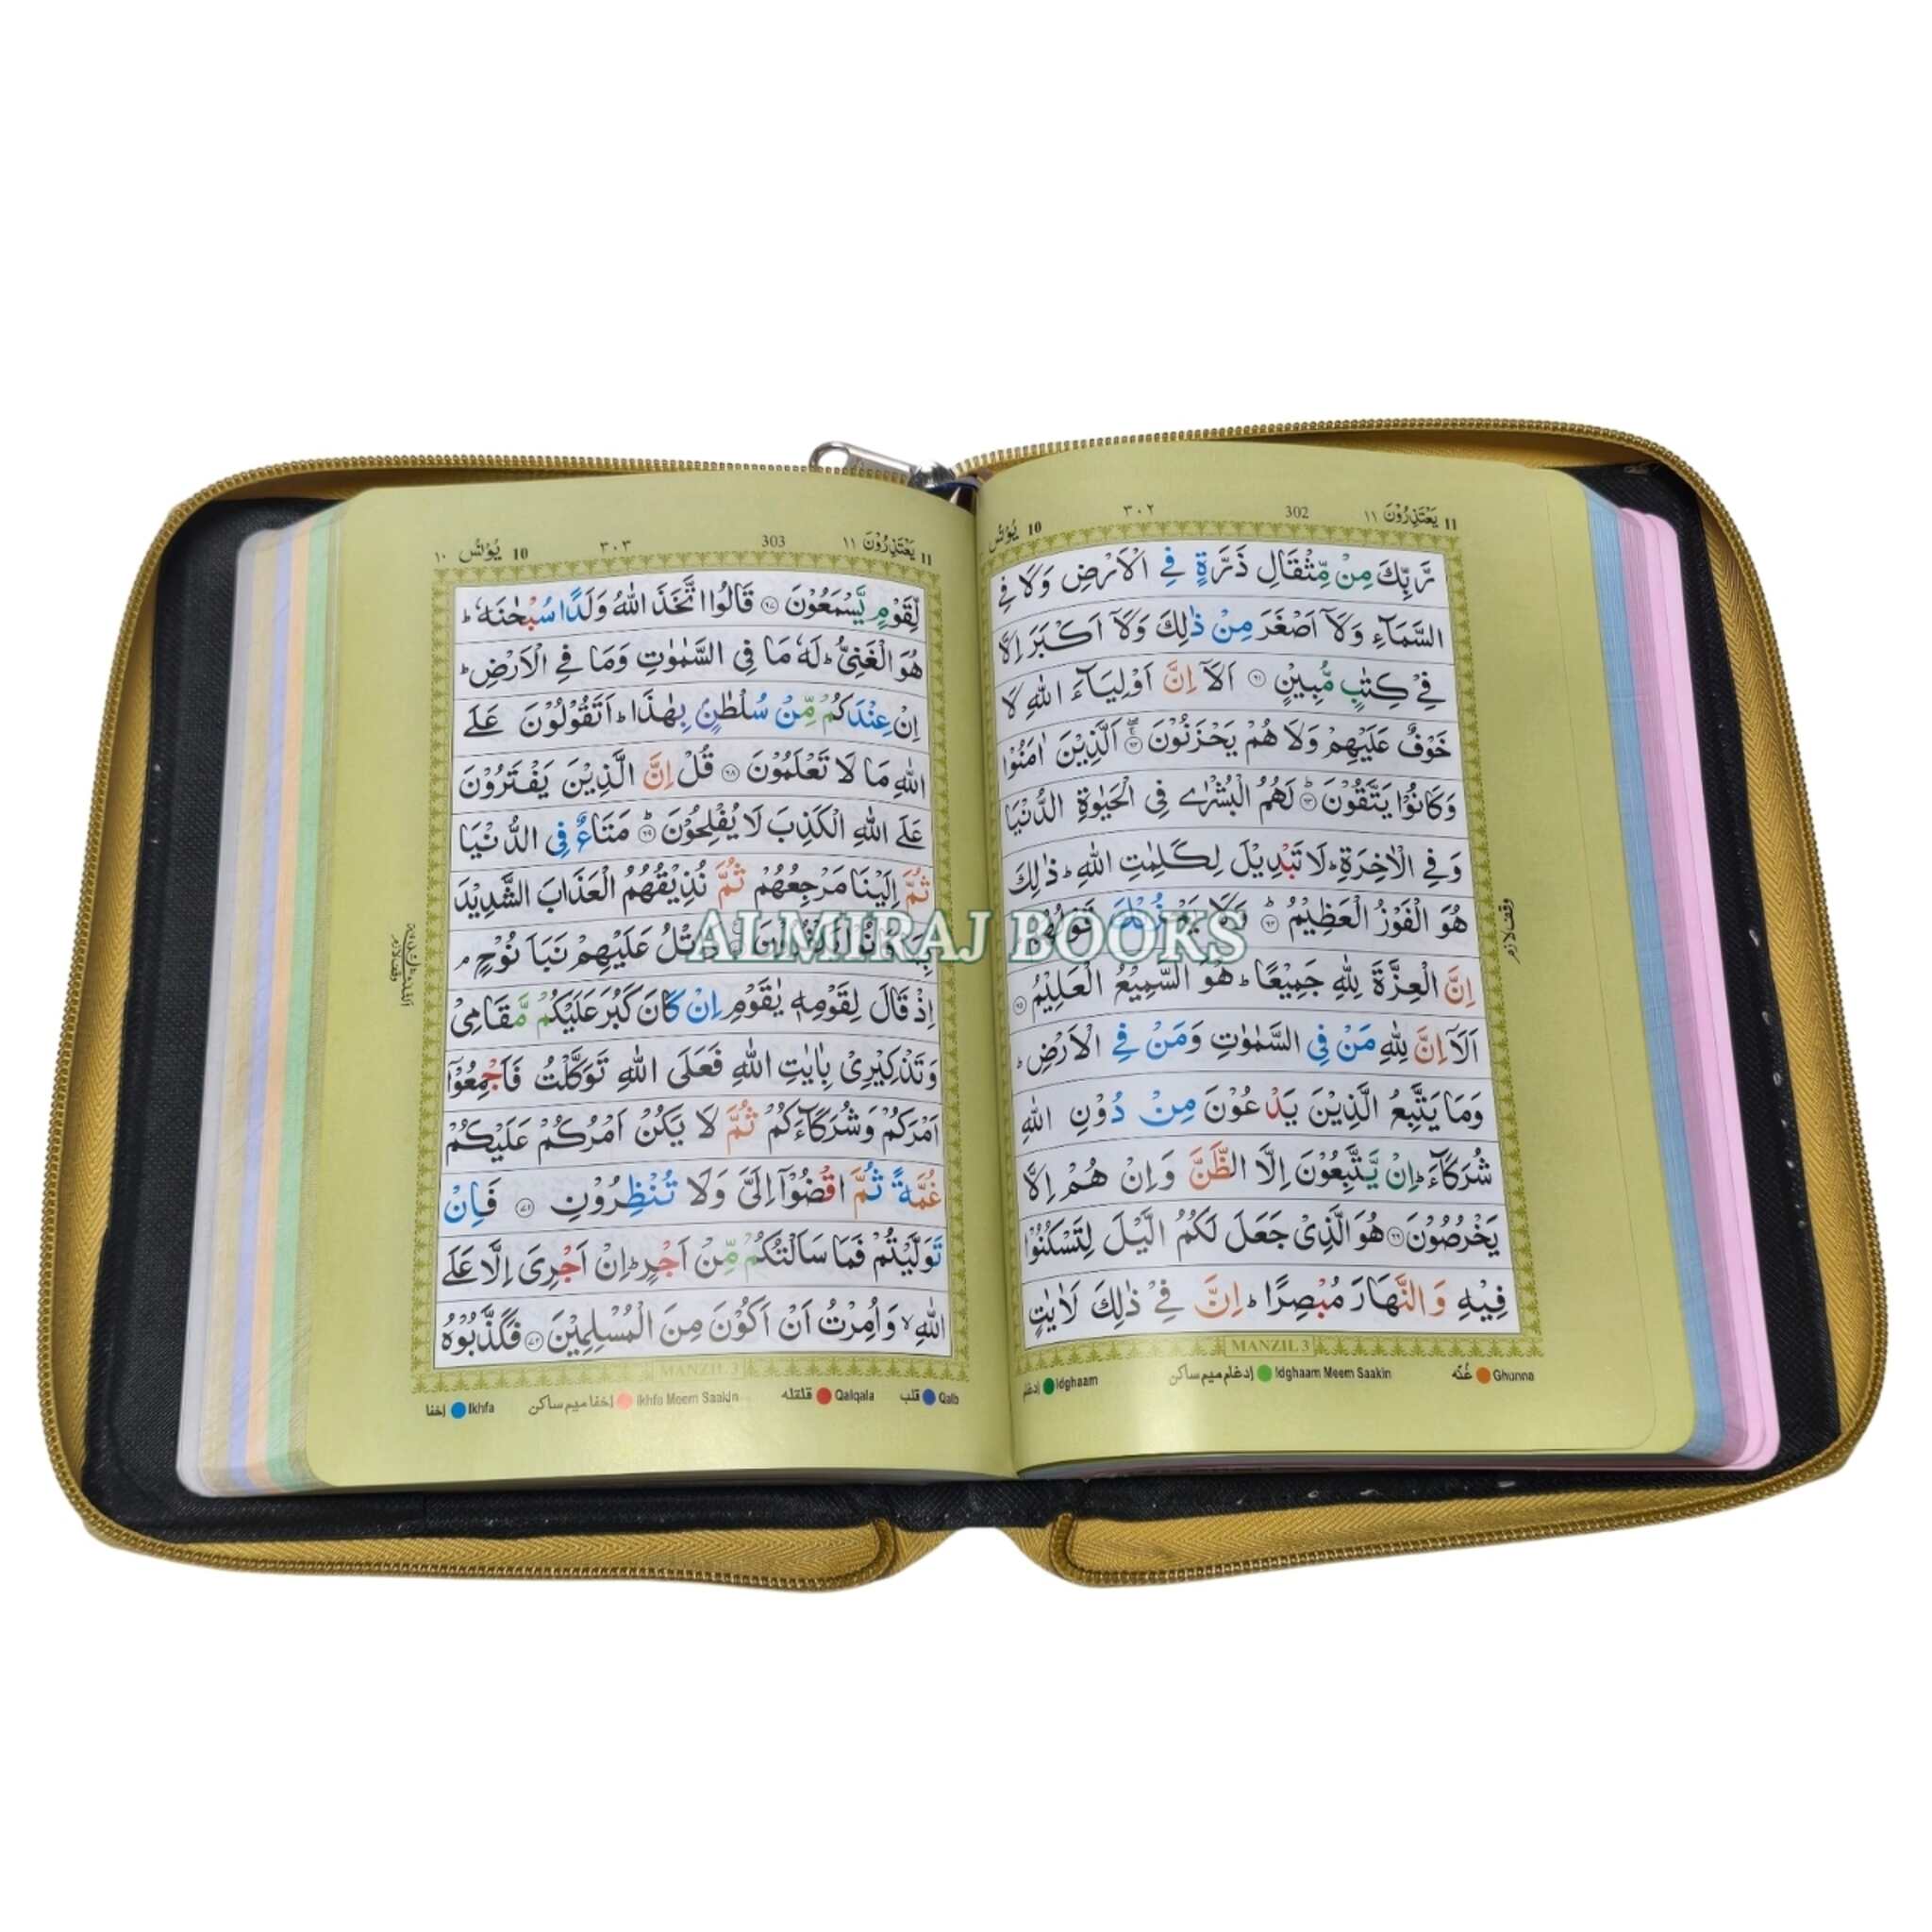 11 يَعْتَذِرُوْنَ ١١ 302 ٣٠٢ 10 يُوْنُسُ
رَّبِّكَ مِنْ مِّثْقَالِ ذَرَّةٍ فِي الْاَرْضِ وَلَا فِي
السَّمَآءِ وَلَآ اَصْغَرَ مِنْ ذٰلِكَ وَلَآ اَكْبَرَ اِلَّا
فِيْ كِتٰبٍ مُّبِيْنٍ ۝٦١ اَلَآ اِنَّ اَوْلِيَآءَ اللّٰهِ لَا
خَوْفٌ عَلَيْهِمْ وَلَا هُمْ يَحْزَنُوْنَ ۝٦٢ اَلَّذِيْنَ اٰمَنُوْا
وَكَانُوْا يَتَّقُوْنَ ۝٦٣ؕ لَهُمُ الْبُشْرٰى فِي الْحَيٰوةِ الدُّنْيَا
وَفِي الْاٰخِرَةِ ؕ لَا تَبْدِيْلَ لِكَلِمٰتِ اللّٰهِ ؕ ذٰلِكَ
هُوَ الْفَوْزُ الْعَظِيْمُ ۝٦٤ؕ وَلَا يَحْزُنْكَ قَوْلُهُمْ
اِنَّ الْعِزَّةَ لِلّٰهِ جَمِيْعًا ؕ هُوَ السَّمِيْعُ الْعَلِيْمُ ۝٦٥
اَلَآ اِنَّ لِلّٰهِ مَنْ فِي السَّمٰوٰتِ وَمَنْ فِي الْاَرْضِ ؕ
وَمَا يَتَّبِعُ الَّذِيْنَ يَدْعُوْنَ مِنْ دُوْنِ اللّٰهِ
شُرَكَآءَ ؕ اِنْ يَّتَّبِعُوْنَ اِلَّا الظَّنَّ وَاِنْ هُمْ اِلَّا
يَخْرُصُوْنَ ۝٦٦ هُوَ الَّذِيْ جَعَلَ لَكُمُ الَّيْلَ لِتَسْكُنُوْا
فِيْهِ وَالنَّهَارَ مُبْصِرًا ؕ اِنَّ فِيْ ذٰلِكَ لَاٰيٰتٍ
وقف لازم
MANZIL 3
إدغام Idghaam إدغام ميم ساكن Idghaam Meem Saakin غُنّه Ghunna
11 يَعْتَذِرُوْنَ ١١ 303 ٣٠٣ 10 يُوْنُسُ ١٠
لِّقَوْمٍ يَّسْمَعُوْنَ ۝٦٧ قَالُوا اتَّخَذَ اللّٰهُ وَلَدًا سُبْحٰنَهٗ ؕ
هُوَ الْغَنِيُّ ؕ لَهٗ مَا فِي السَّمٰوٰتِ وَمَا فِي الْاَرْضِ ؕ
اِنْ عِنْدَكُمْ مِّنْ سُلْطٰنٍۭ بِهٰذَا ؕ اَتَقُوْلُوْنَ عَلَى
اللّٰهِ مَا لَا تَعْلَمُوْنَ ۝٦٨ قُلْ اِنَّ الَّذِيْنَ يَفْتَرُوْنَ
عَلَى اللّٰهِ الْكَذِبَ لَا يُفْلِحُوْنَ ۝٦٩ؕ مَتَاعٌ فِي الدُّنْيَا
ثُمَّ اِلَيْنَا مَرْجِعُهُمْ ثُمَّ نُذِيْقُهُمُ الْعَذَابَ الشَّدِيْدَ
عَلَيْهِمْ نَبَاَ نُوْحٍ ۘ
اِذْ قَالَ لِقَوْمِهٖ يٰقَوْمِ اِنْ كَانَ كَبُرَ عَلَيْكُمْ مَّقَامِيْ
وَتَذْكِيْرِيْ بِاٰيٰتِ اللّٰهِ فَعَلَى اللّٰهِ تَوَكَّلْتُ فَاَجْمِعُوْٓا
اَمْرَكُمْ وَشُرَكَآءَكُمْ ثُمَّ لَا يَكُنْ اَمْرُكُمْ عَلَيْكُمْ
غُمَّةً ثُمَّ اقْضُوْٓا اِلَيَّ وَلَا تُنْظِرُوْنِ ۝٧١ فَاِنْ
تَوَلَّيْتُمْ فَمَا سَاَلْتُكُمْ مِّنْ اَجْرٍ ؕ اِنْ اَجْرِيَ اِلَّا عَلَى
اللّٰهِ ۙ وَاُمِرْتُ اَنْ اَكُوْنَ مِنَ الْمُسْلِمِيْنَ ۝٧٢ فَكَذَّبُوْهُ
وقف لازم
MANZIL 3
إخفا Ikhfa إخفا ميم ساكن Ikhfa Meem Saakin قلقله Qalqala قلب Qalb
ALMIRAJ BOOKS